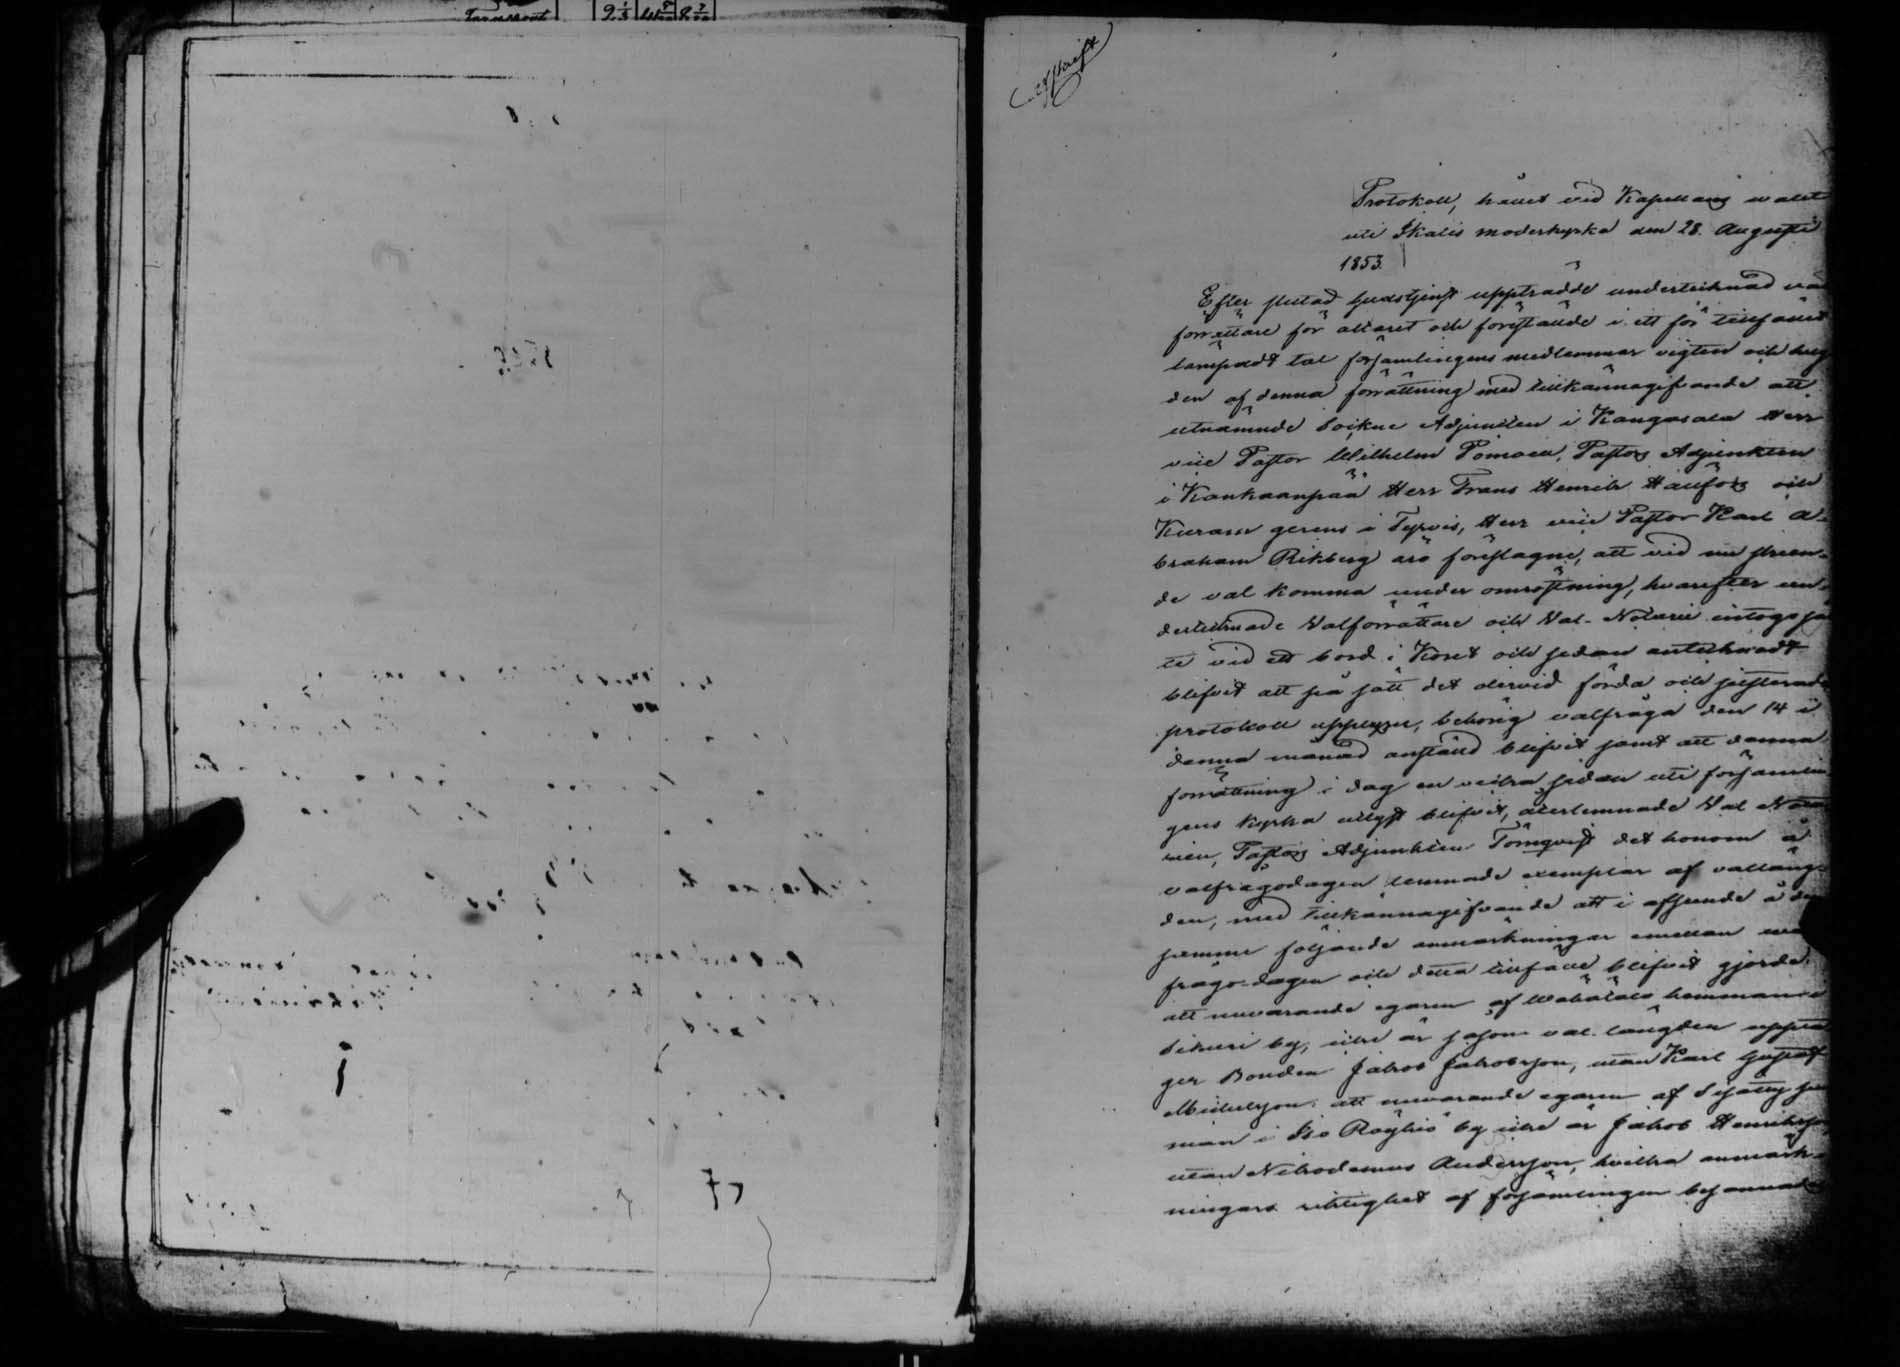 Afskrift
Protokoll, hållet vid Kapellans valet
uti Ikalis moderkyrka den 28. Augusti
1853.
Efter slutad Gudstjenst uppträdde undertecknad val
förrättare för altaret och föreställde i ett för tillfället
lämpadt tal församlingens medlemmar vigten och helg
den af denna förrättning med tillkännagifvande att
utnämnde Sockne Adjunkten i Kangasala Herr
vice Pastor Wilhelm Pomoen, Pastors Adjunkten
i Kankaanpää Herr Frans Henrik Hällfors och
Kuram gerens i Tyrvis, Herr vice Pastor Karl A-
braham Rikberg äro föreslagne, att vid nu skeen-
de val komma under omröstning, hvarefter un-
dertecknade Valförrättare och Val-Notarie intogo sä
te vid ett bord i Koret och sedan antecknadt
blifvit att på sätt det dervid förda och justerade
protokoll upplyser, behörig valfråga den 14 i
denna månad anställd blifvit samt att denna
förrättning i dag en vecka sedan uti församlin
gens kyrka utlyst blifvit, öfverlemnade Val Nota
rien, Pastors Adjunkten Törnqvist det honom å
valfrågodagen lemnade exemplar af valläng-
den, med tillkännagifvande att i afseende å den
samma följande anmärkningar emellan val
frågo-dagen och detta tillfälle blifvit gjorda:
att nuvarande egaren af hemman i
by, icke är såsom val-längden uppta
ger Bonden Jakob Jakobsson, utan Karl Gustaf
Michelsson; att nuvarande egaren af hem
man i Iso Röyhiö by icke är Jakob Henriksson
utan Nikodemus Andersson, hvilka anmärk-
ningars riktighet af församlingen besannades